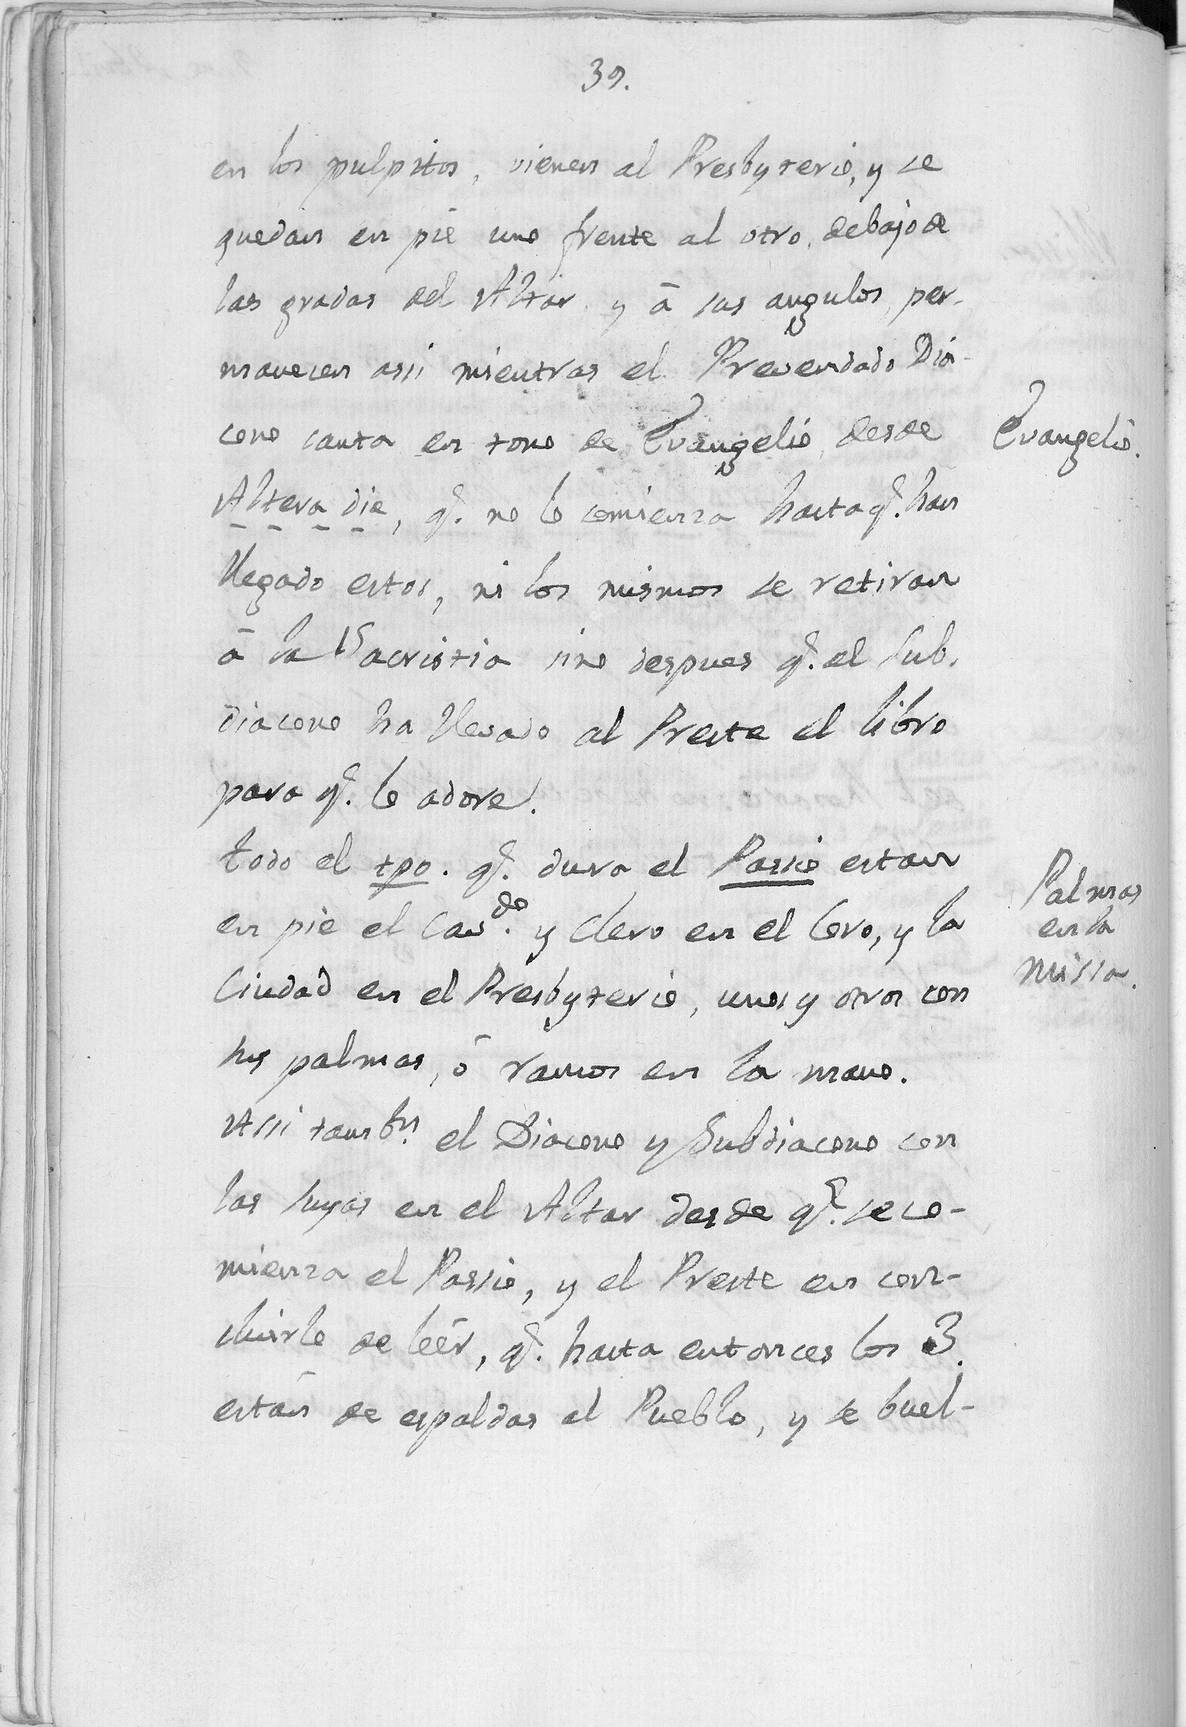 39.
en los pulpitos, vienen al Presbyterio, y se
quedan en pie uno frente al otro, debajo de
las gradas del Altar y â sus angulos, per-
manecen assi mientras el Prevendado Diá-
cono canta en tono de Evangelio, desde
Evangelio.
Altera die, q.e no lo comienza hasta q.e han
llegado estos, ni los mismos se retiran
â la Sacristia sino despues q.e el Sub-
diacono ha llevado al Preste el libro
para q.e le adore.
Todo el tpo. q.e dura el Passio estan
en pie el Cav.do y Clero en el Coro, y la
Ciudad en el Presbyterio, unos y otros con
sus palmas, ó ramos en la mano.
Palmas
en la
Missa.
Assi tambn. el Diacono y Subdiacono con
las suyas en el Altar desde q.e se co-
mienza el Passio, y el Preste en con-
cluirlo de leér, q.e hasta entonces los 3.
están de espaldas al Pueblo, y se buel-